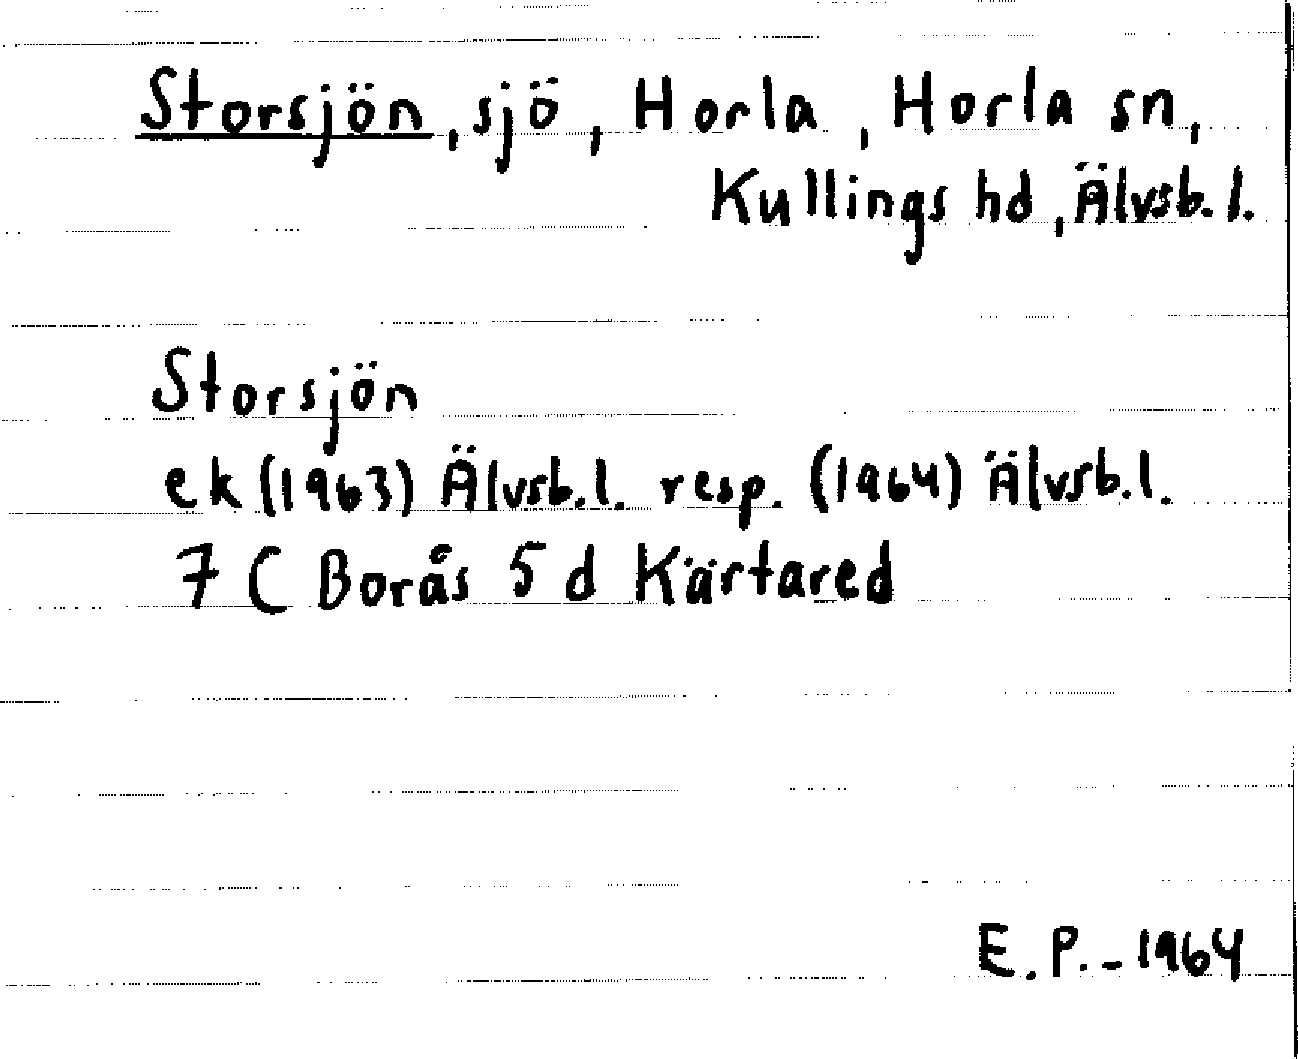 Storsjön, sjö, Horla, Horla sn,
Kullings hd, Älvsb. l.
Storsjön
ek (1963) Älvsb. l. resp. (1964) Älvsb. l.
7 C Borås 5 d Kärtared
E. P. - 1964